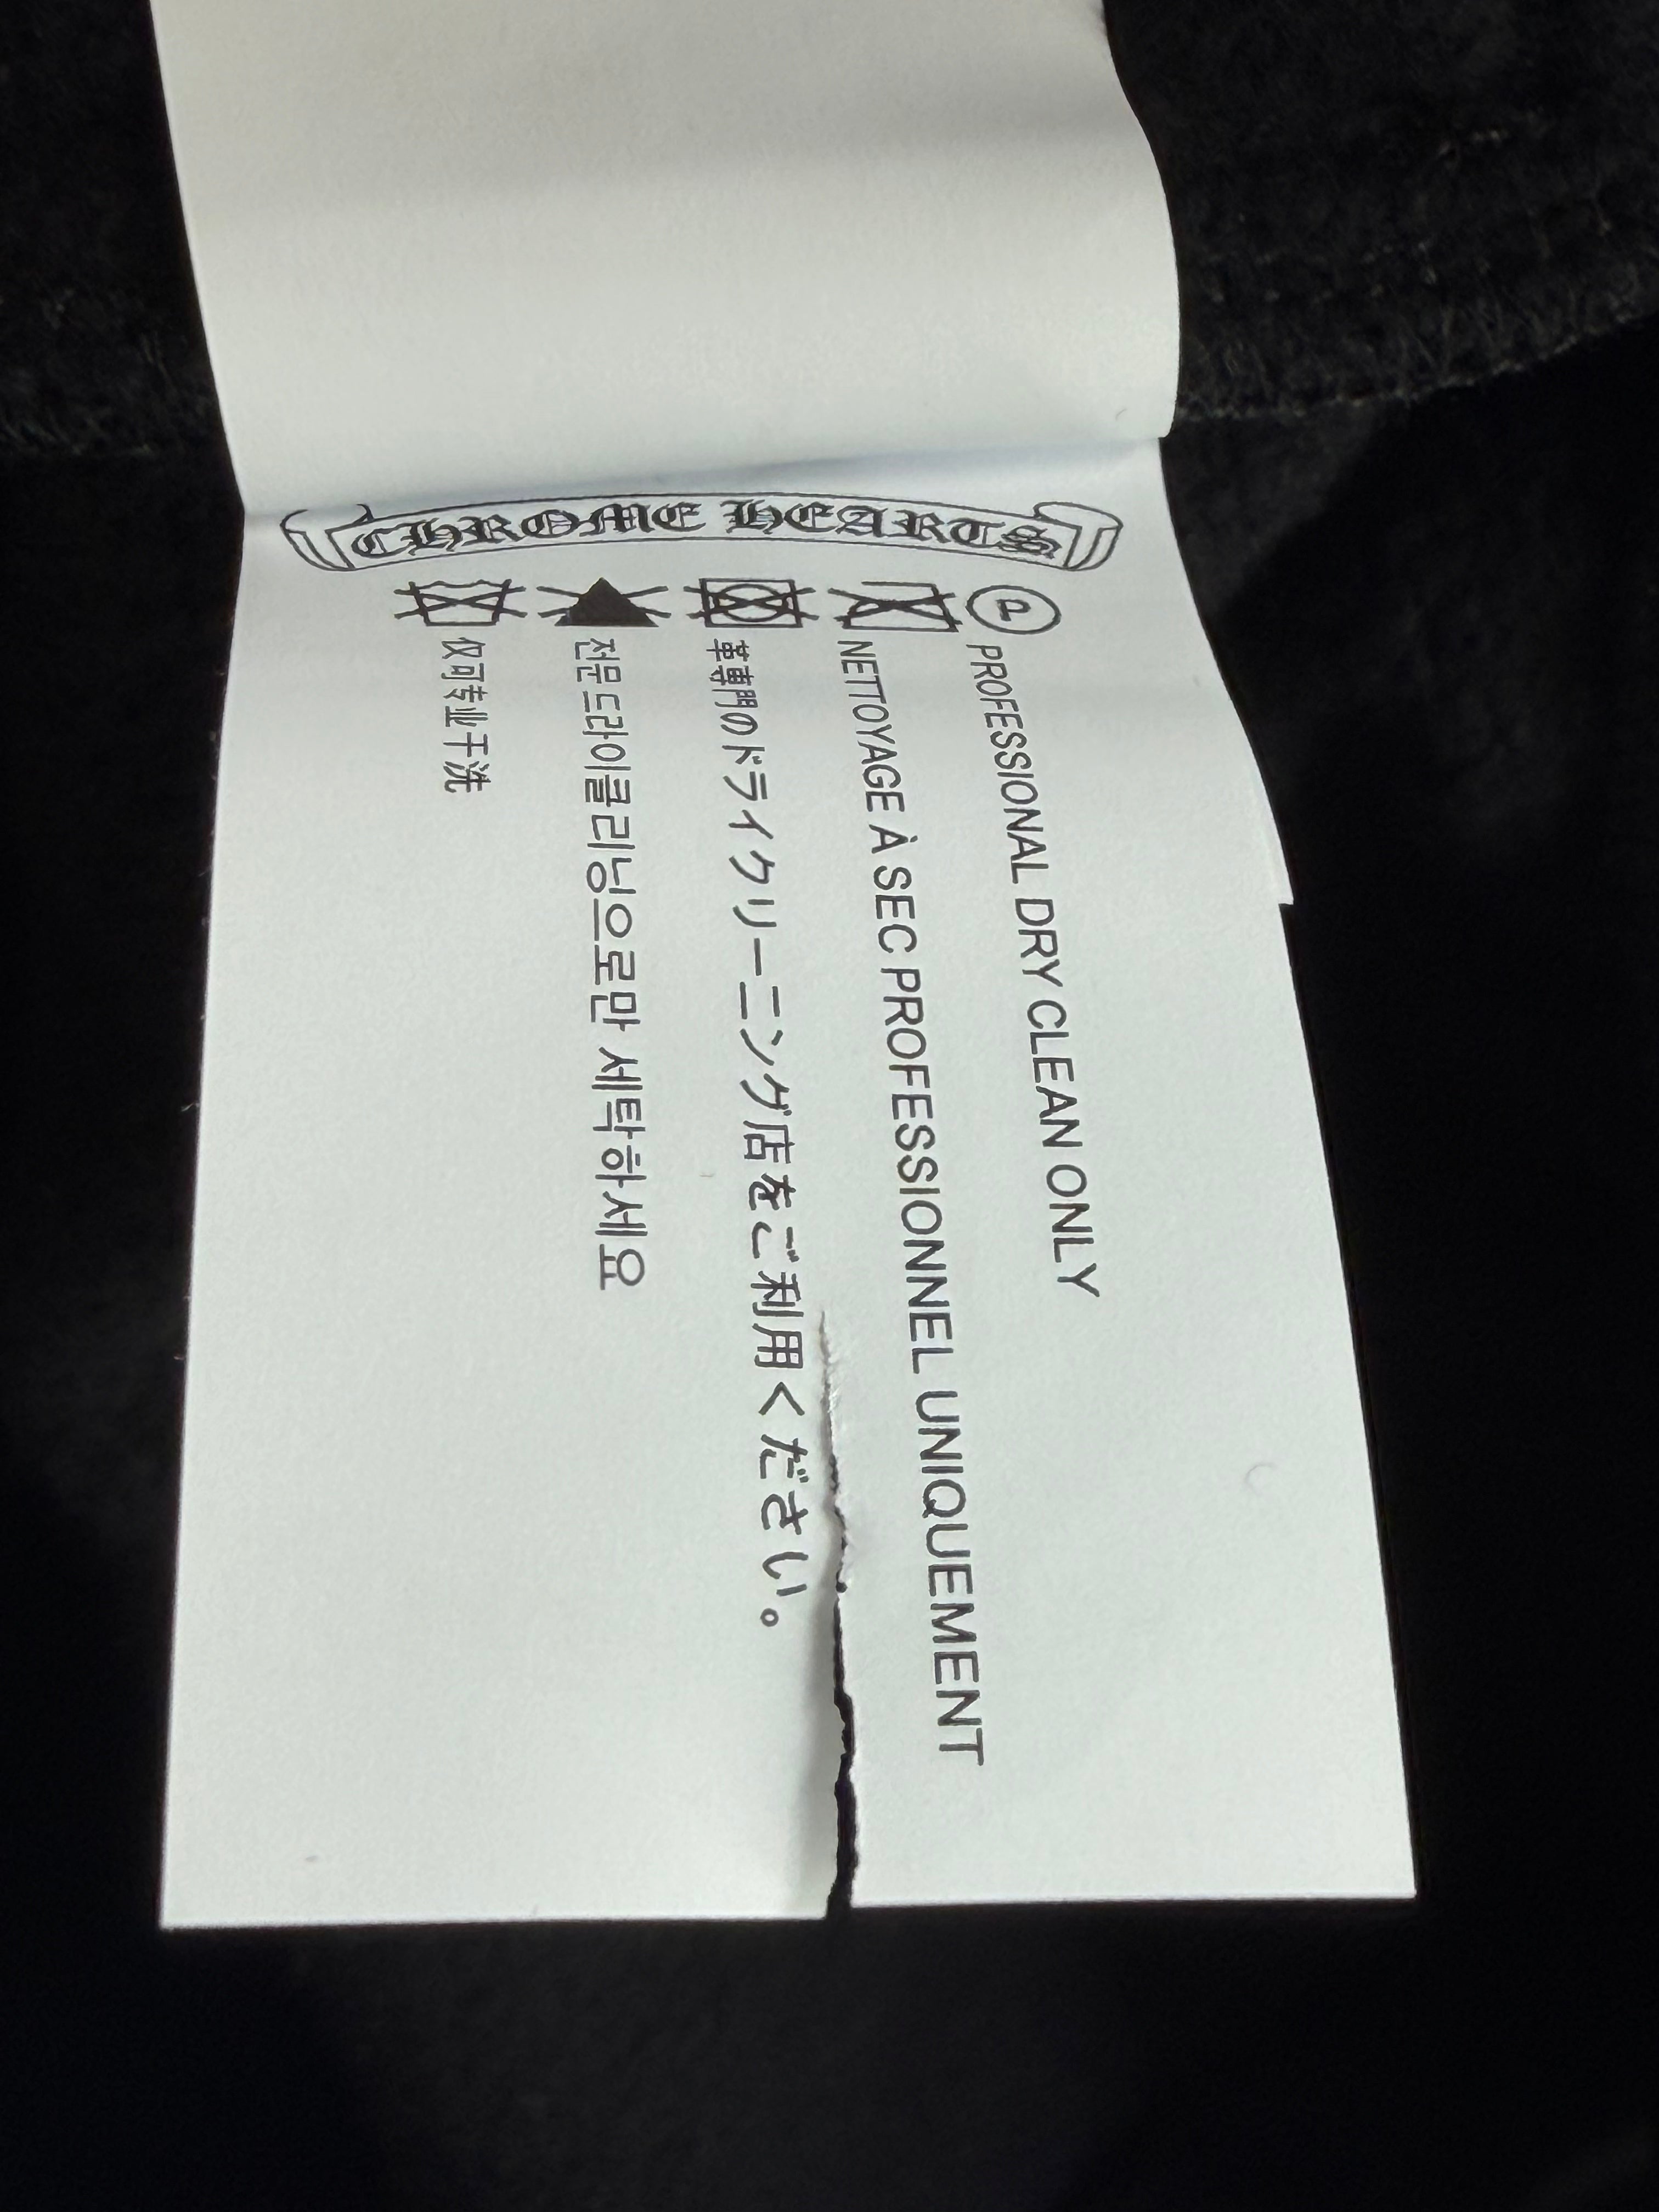 CHROME HEARTS
P
PROFESSIONAL DRY CLEAN ONLY
NETTOYAGE À SEC PROFESSIONNEL UNIQUEMENT
革専門のドライクリーニング店をご利用ください。
전문드라이클리닝으로만 세탁하세요
仅可专业干洗